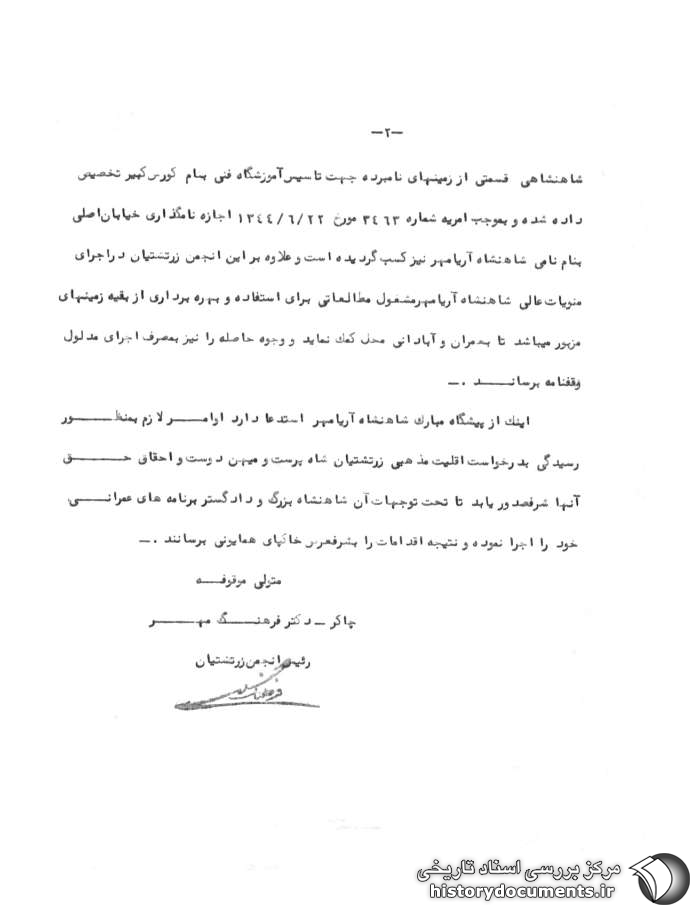 —۲—
شاهنشاهی قسمتی از زمینهای نامبرده جهت تاسیس آموزشگاه فنی بنام کورش کبیر تخصیص
داده شده و بموجب امریه شماره ۳۴۶۳ مورخ ۱۳۴۴/۶/۲۲ اجازه نامگذاری خیابان اصلی
بنام نامی شاهنشاه آریامهر نیز کسب گردیده است و علاوه بر این انجمن زرتشتیان در اجرای
منویات عالی شاهنشاه آریامهر مشغول مطالعاتی برای استفاده و بهره برداری از بقیه زمینهای
مزبور میباشد تا بعمران و آبادانی محل کمک نماید و وجوه حاصله را نیز بمصرف اجرای مدلول
وقفنامه برساند .ـ
اینک از پیشگاه مبارک شاهنشاه آریامهر استدعا دارد اوامر لازم بمنظور
رسیدگی بدرخواست اقلیت مذهبی زرتشتیان شاه پرست و میهن دوست و احقاق حق
آنها شرفصدور یابد تا تحت توجهات آن شاهنشاه بزرگ و دادگستر برنامه های عمرانی
خود را اجرا نموده و نتیجه اقدامات را بشرفعرض خاکپای همایونی برسانند .ـ
متولی موقوفه
چاکر ـ دکتر فرهنگ مهر
رئیس انجمن زرتشتیان
فرهنگ مهر
مرکز بررسی اسناد تاریخی
historydocuments.ir